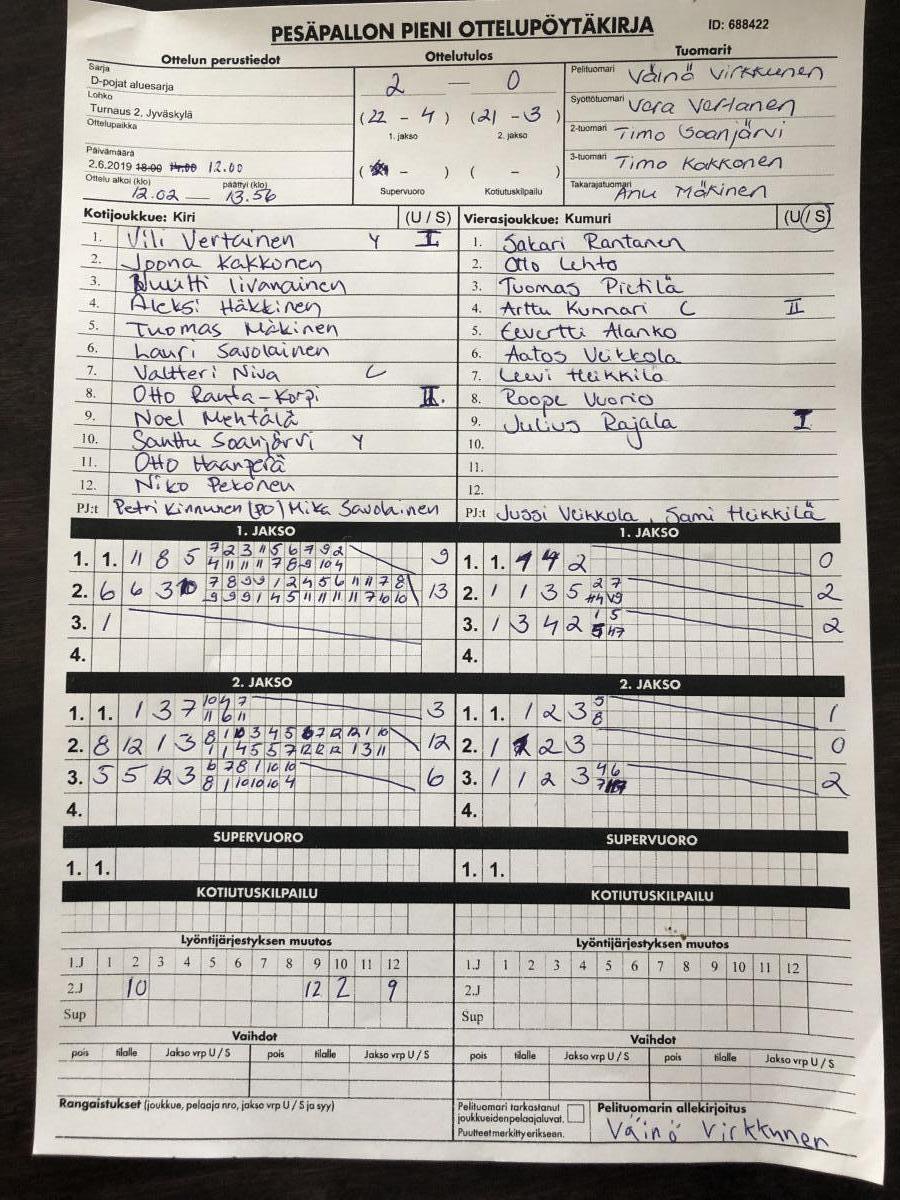 PESÄPALLON PIENI OTTELUPÖYTÄKIRJA ID: 688422
Ottelun perustiedot Ottelutulos Tuomarit
Sarja
D-pojat aluesarja
Lohko
Turnaus 2, Jyväskylä
Ottelupaikka
Päivämäärä
2.6.2019 18:00 14:00 12.00
Ottelu alkoi (klo) päättyi (klo)
12.02 — 13.56
2 — 0
(22 - 4) (21 - 3)
1. jakso 2. jakso
( - ) ( - )
Supervuoro Kotiutuskilpailu
Pelituomari Väinö Virkkunen
Syöttötuomari Vera Vertanen
2-tuomari Timo Soanjärvi
3-tuomari Timo Kakkonen
Takarajatuomari Anu Mäkinen
Kotijoukkue: Kiri (U / S)
1. Vili Vertainen Y I
2. Joona Kakkonen
3. Nuutti Iivanainen
4. Aleksi Häkkinen
5. Tuomas Mäkinen
6. Lauri Savolainen
7. Valtteri Niva C
8. Otto Ranta-Korpi II.
9. Noel Mehtälä
10. Santtu Soanjärvi Y
11. Otto Haanperä
12. Niko Pekonen
PJ:t Petri Kinnunen (PO) Mika Savolainen
Vierasjoukkue: Kumuri (U / S)
1. Sakari Rantanen
2. Otto Lehto
3. Tuomas Pietilä
4. Arttu Kunnari C II
5. Eevertti Alanko
6. Aatos Veikkola
7. Leevi Heikkilä
8. Roope Vuorio
9. Julius Rajala I
10.
11.
12.
PJ:t Jussi Veikkola, Sami Heikkilä
1. JAKSO
1. 1. 11 8 5 7 2 3 11 5 6 7 9 2 9
4 11 11 11 7 8 9 10 4
2. 6 6 3 10 7 8 9 9 1 2 4 5 6 11 11 7 8 13
9 9 9 1 4 5 11 11 11 11 7 10 10
3. 1
4.
1. JAKSO
1. 1. 4 2 0
2. 1 1 3 5 2 7 2
3. 1 3 4 2 1 5 2
4.
2. JAKSO
1. 1. 1 3 7 10 4 7 3
11 6 11
2. 8 12 1 3 8 1 10 3 4 5 6 7 12 12 1 10 12
1 1 4 5 5 7 12 12 12 1 3 11
3. 5 5 12 3 6 7 8 1 10 10 6
8 1 10 10 10 4
4.
2. JAKSO
1. 1. 1 2 3 5 1
8
2. 1 2 3 0
3. 1 1 2 3 4 6 2
4.
SUPERVUORO
1. 1.
SUPERVUORO
1. 1.
KOTIUTUSKILPAILU
KOTIUTUSKILPAILU
Lyöntijärjestyksen muutos
1.J 1 2 3 4 5 6 7 8 9 10 11 12
2.J 10 12 2 9
Sup
Lyöntijärjestyksen muutos
1.J 1 2 3 4 5 6 7 8 9 10 11 12
2.J
Sup
Vaihdot
pois tilalle Jakso vrp U / S pois tilalle Jakso vrp U / S
Vaihdot
pois tilalle Jakso vrp U / S pois tilalle Jakso vrp U / S
Rangaistukset (joukkue, pelaaja nro, jakso vrp U / S ja syy)
Pelituomari tarkastanut
joukkueiden pelaajaluvat.
Puutteet merkitty erikseen.
Pelituomarin allekirjoitus
Väinö Virkkunen